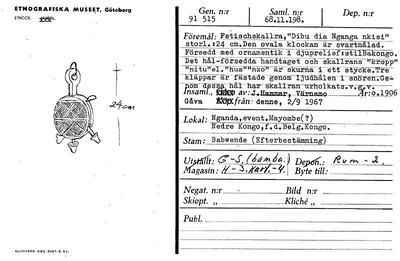 ETNOGRAFISKA MUSEET, Göteborg
24cm
Gen. n:r Saml. n:r Dep. n:r
91 515 68.11.198.
Föremål: Fetischskallra,"Dibu dia Nganga nkisi"
storl.:24 cm.Den ovala klockan är svartmålad.
Försedd med ornamentik i djuprelief:stilBakongo.
Det hål-försedda handtaget och skallrans "kropp"
"nitu"el."hus""nzo" är skurna i ett stycke.Tre
kläppar är fästade genom ljudhålen i snören.Ge-
nom dessa hål har skallran urholkats.v.g.v.
Insaml. av:J.Hammar, Värnamo År:o.1906
Gåva från: denne, 2/9 1967
Lokal: Nganda,event.Mayombe(?)
Nedre Kongo,f.d.Belg.Kongo.
Stam: Babwende (Efterbestämning)
Utställt: G-S.(bamba.) Depon.: Rum-2.
Magasin: H-3.Kart.-4. Byte till:
Negat. n:r Bild n:r
Skiopt. n:r Kliché n:r
Publ.